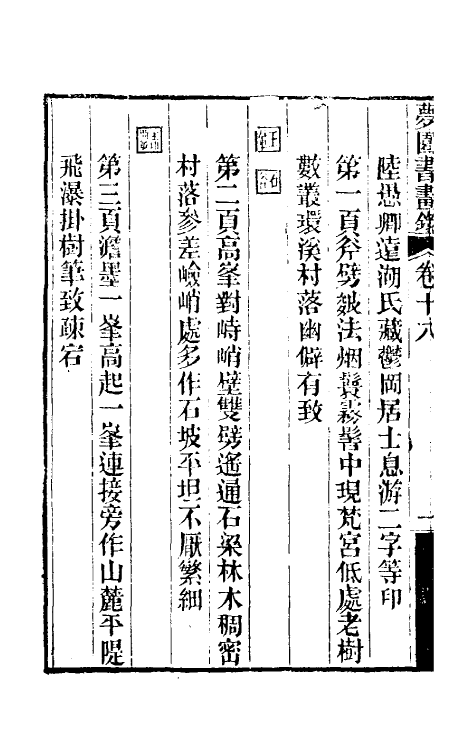 夢園書畫錄 卷十八 一
陸愚卿遠湖氏藏鬱岡居士息游二字等印
第一頁斧劈皴法烟鬟霧鬢中現梵宮低處老樹
數叢環溪村落幽僻有致
第二頁高峯對峙峭壁雙劈遙通石梁林木稠密
村落參差嶮峭處多作石坡平坦不厭繁細
第三頁澹墨一峯高起一峯連接旁作山麓平隄
飛瀑掛樹筆致疎宕